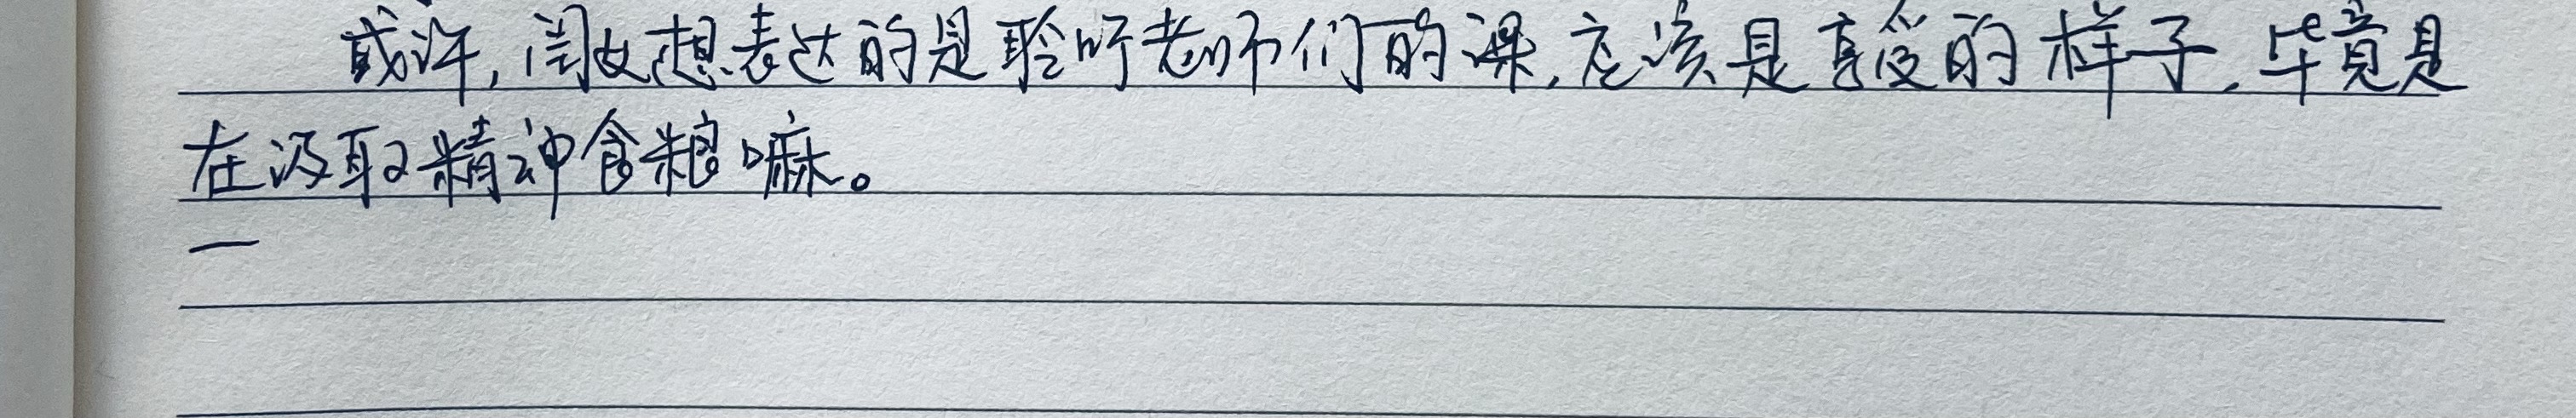 或许，闺女想表达的是聆听老师们的课，应该是享受的样子，毕竟是
在汲取精神食粮嘛。
一